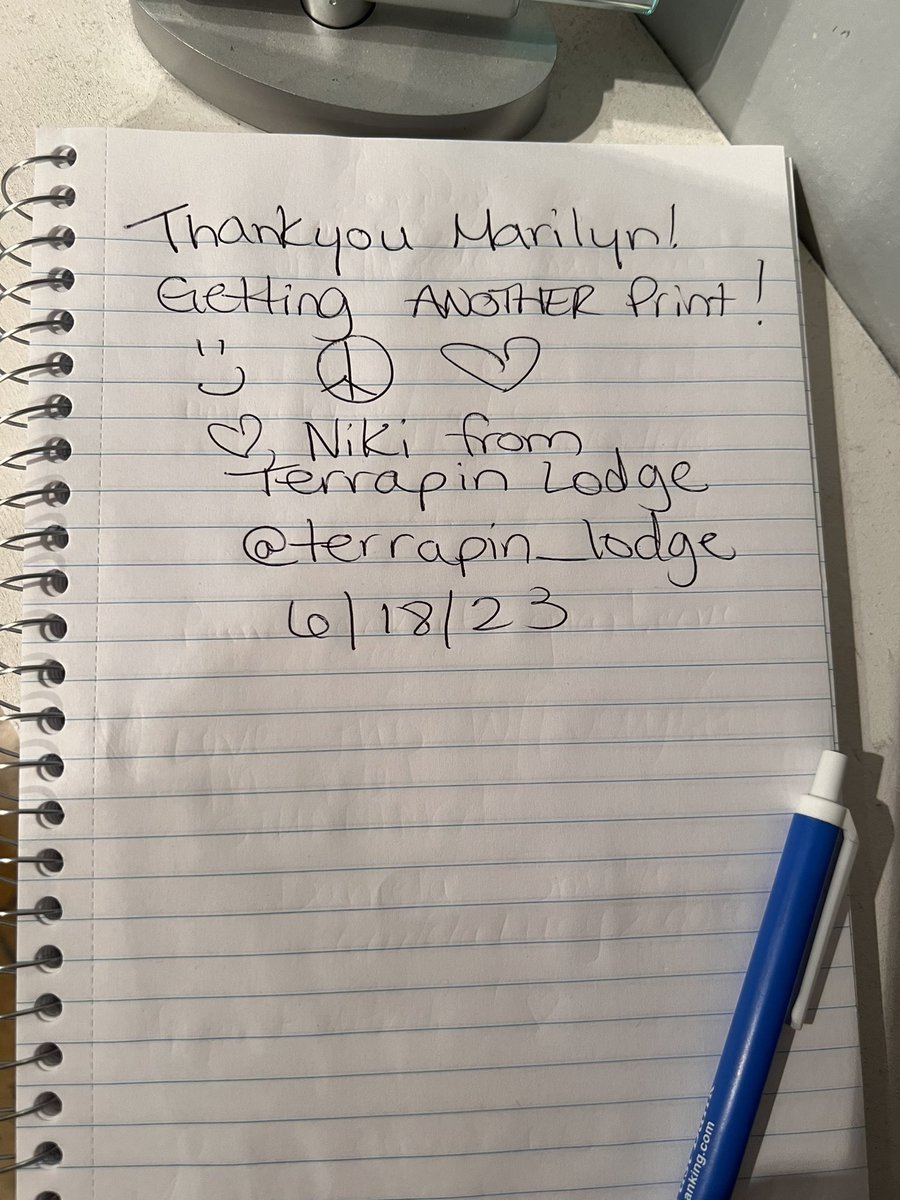 Thankyou Marilyn!
Getting ANOTHER Print!
Niki from
Terrapin Lodge
@terrapin_lodge
6/18/23
anking.com